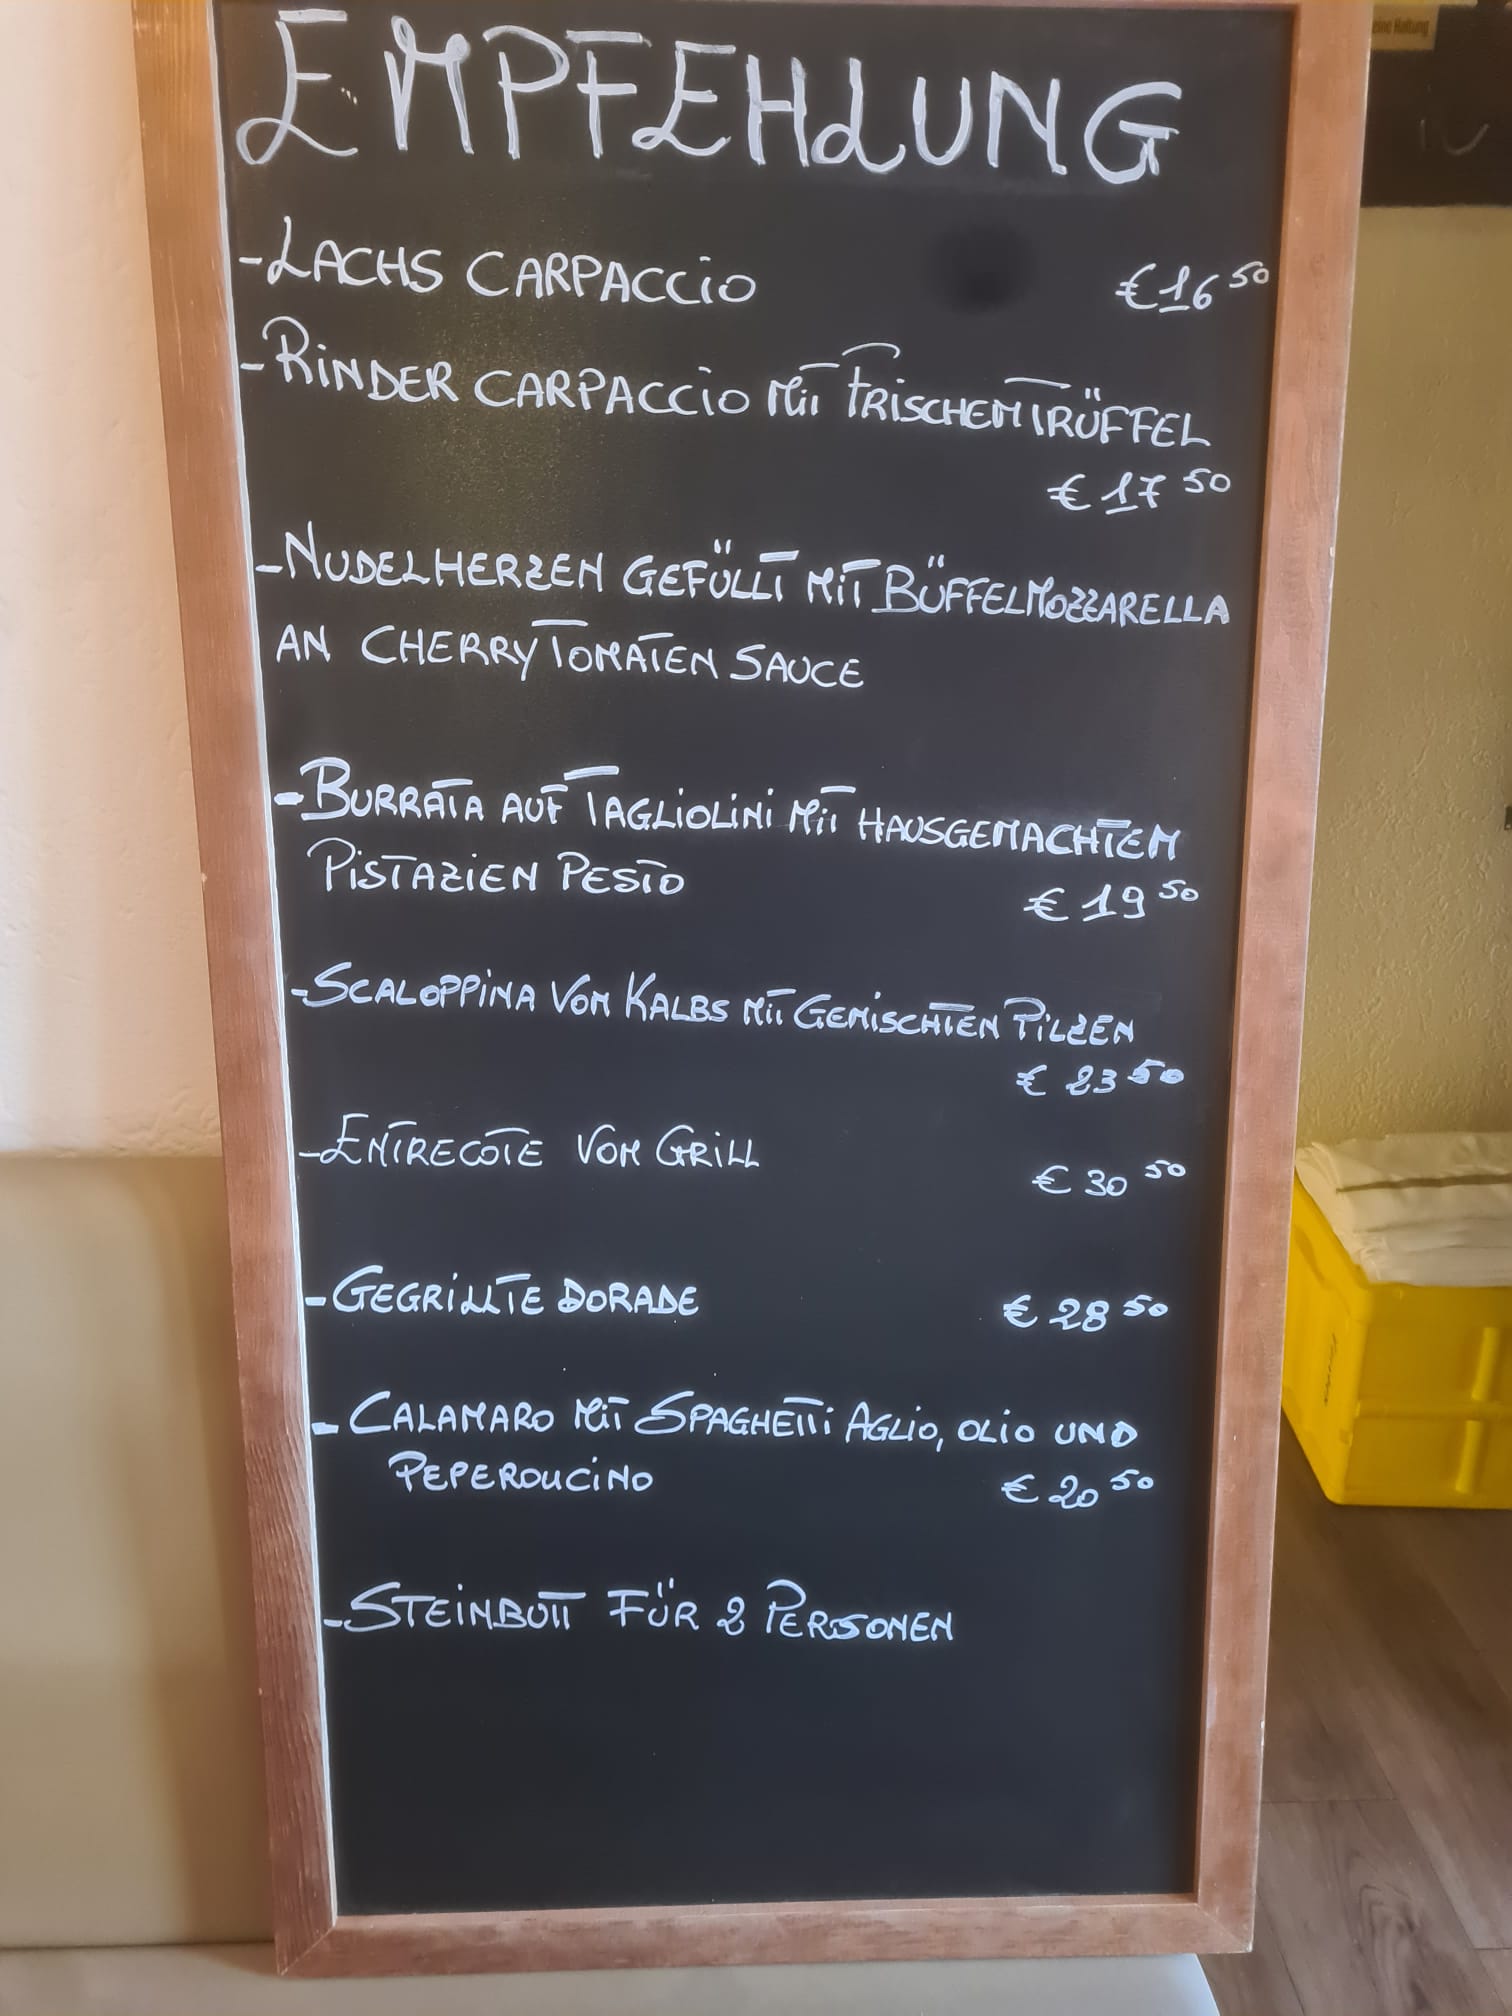 EMPFEHLUNG
- LACHS CARPACCIO €16 50
- RINDER CARPACCIO MIT FRISCHEM TRÜFFEL
€ 17 50
- NUDELHERZEN GEFÜLLT MIT BÜFFELMOZZARELLA
AN CHERRY TOMATEN SAUCE
- BURRATA AUF TAGLIOLINI MIT HAUSGEMACHTEM
PISTAZIEN PESTO € 19 50
- SCALOPPINA VOM KALBS MIT GEMISCHTEN PILZEN
€ 23 50
- ENTRECOTE VOM GRILL € 30 50
- GEGRILLTE DORADE € 28 50
- CALAMARO MIT SPAGHETTI AGLIO, OLIO UND
PEPEROUCINO € 20 50
- STEINBUTT FÜR 2 PERSONEN
eine Haltung